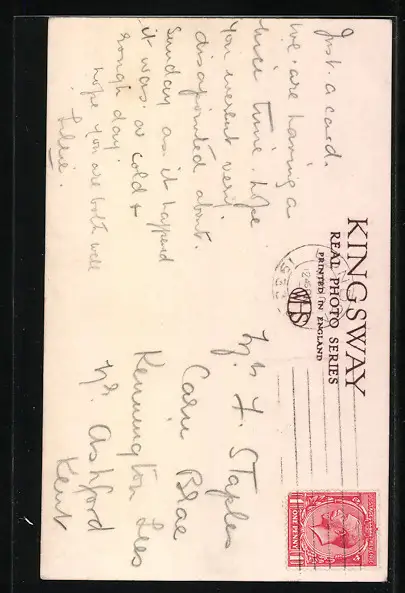 KINGSWAY
REAL PHOTO SERIES
PRINTED IN ENGLAND
Just a card.
we are having a
nice time. hope
you werent very
disapointed about
Sunday as it happend
it was so cold &
rough day.
hope you are both well
Mrs F. Staples
Cairn Brae
Kennington Lees
Nr Ashford
Kent
ONE PENNY